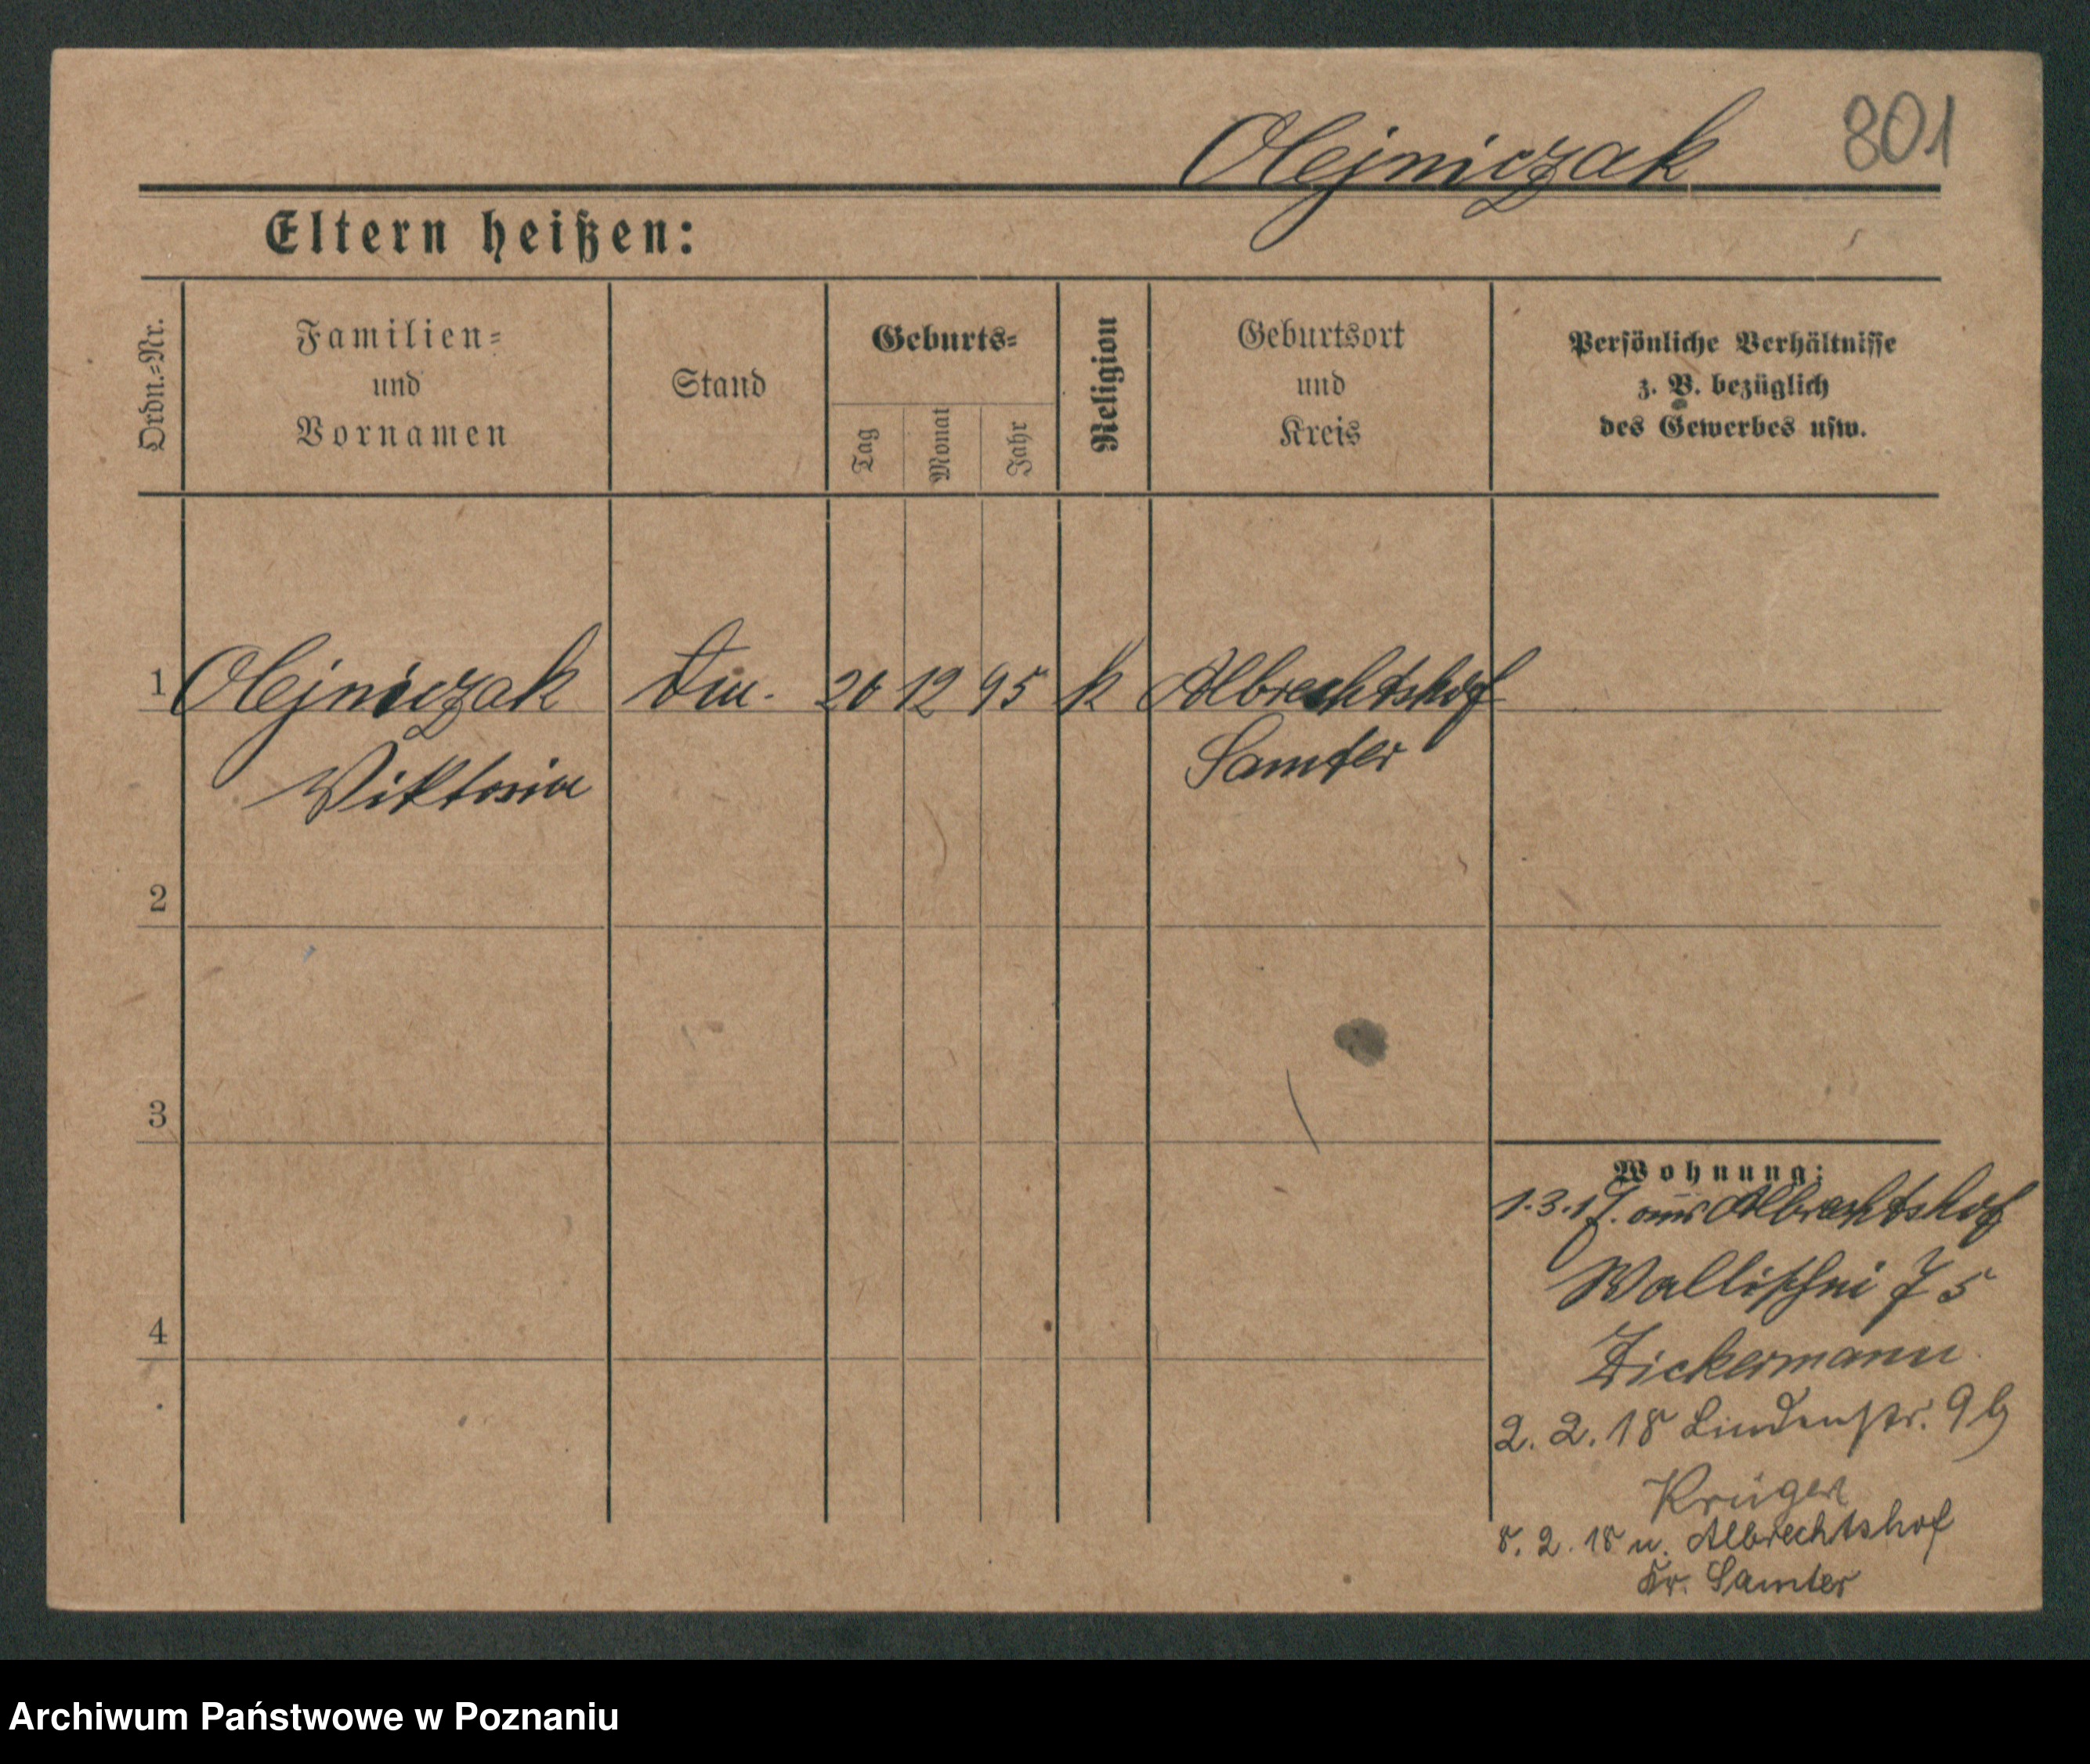 Olejniczak 801
Eltern heißen:
Ordn.=Nr.
Familien=
und
Vornamen
Stand
Geburts=
Tag
Monat
Jahr
Religion
Geburtsort
und
Kreis
Persönliche Verhältnisse
z. B. bezüglich
des Gewerbes usw.
1 Olejniczak 12 95 k Albrechtshof
Viktoria Samter
2
3
4
Wohnung:
1.3.17. aus Albrechtshof
Wallischei 75
Zickermann
2.2.18 Lindenstr. 9b
Krüger
8.2.18 n. Albrechtshof
Kr. Samter
Archiwum Państwowe w Poznaniu